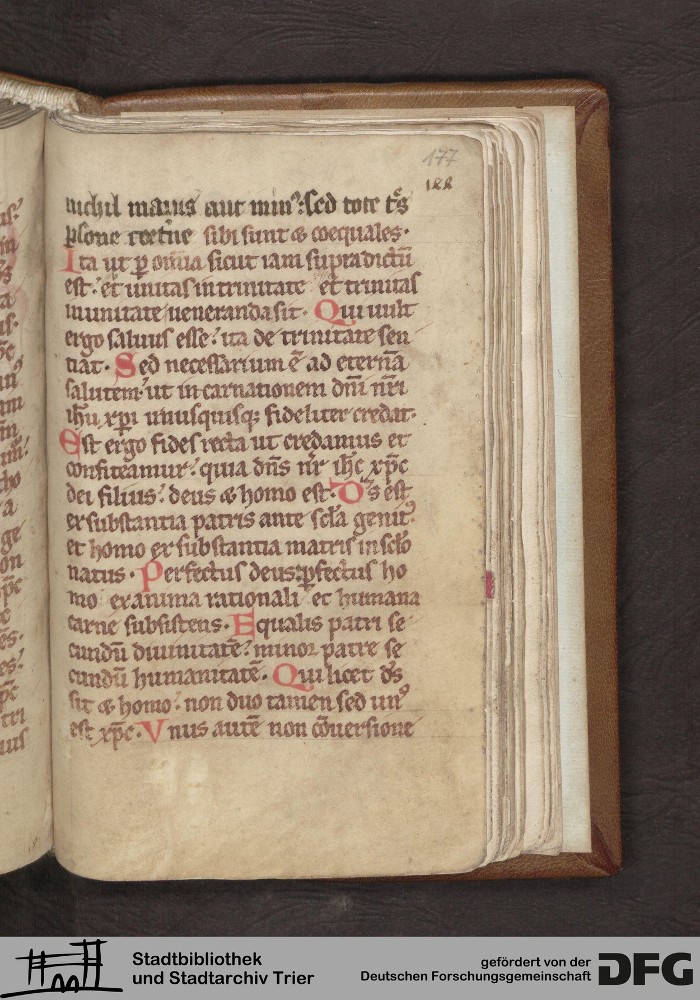 177
188
nichil maius aut minꝰ: sed tote tͣs
ꝑsone cͦetͣne sibi sunt & coequales.
Ita ut ꝑ om̄ia sicut iam supradictū
est: et unitas in trinitate et trinitas
in unitate ueneranda sit. Qui uult
ergo saluus esse: ita de trinitate sen
tiat. Sed necessarium ē ad eternā
salutem: ut incarnationem dn̄i nr̄i
ih̄u xp̄i unusquisq; fideliter credat.
Est ergo fides recta ut credamus et
confiteamur: quia dn̄s nr̄ ih̄c xp̄c
dei filius: deus & homo est. Ds̄ est
ex substantia patris ante scl̄a genitꝰ:
et homo ex substantia matris in scl̄o
natus. Perfectus deus: ꝑfectus ho
mo ex anima rationali et humana
carne subsistens. Equalis patri se
cundū diuinitatē: minor patre se
cundū humanitatē. Qui licet ds̄
sit & homo: non duo tamen sed unꝰ
est xp̄c. Vnus autē non cōuersione
Stadtbibliothek
und Stadtarchiv Trier
gefördert von der
Deutschen Forschungsgemeinschaft
DFG